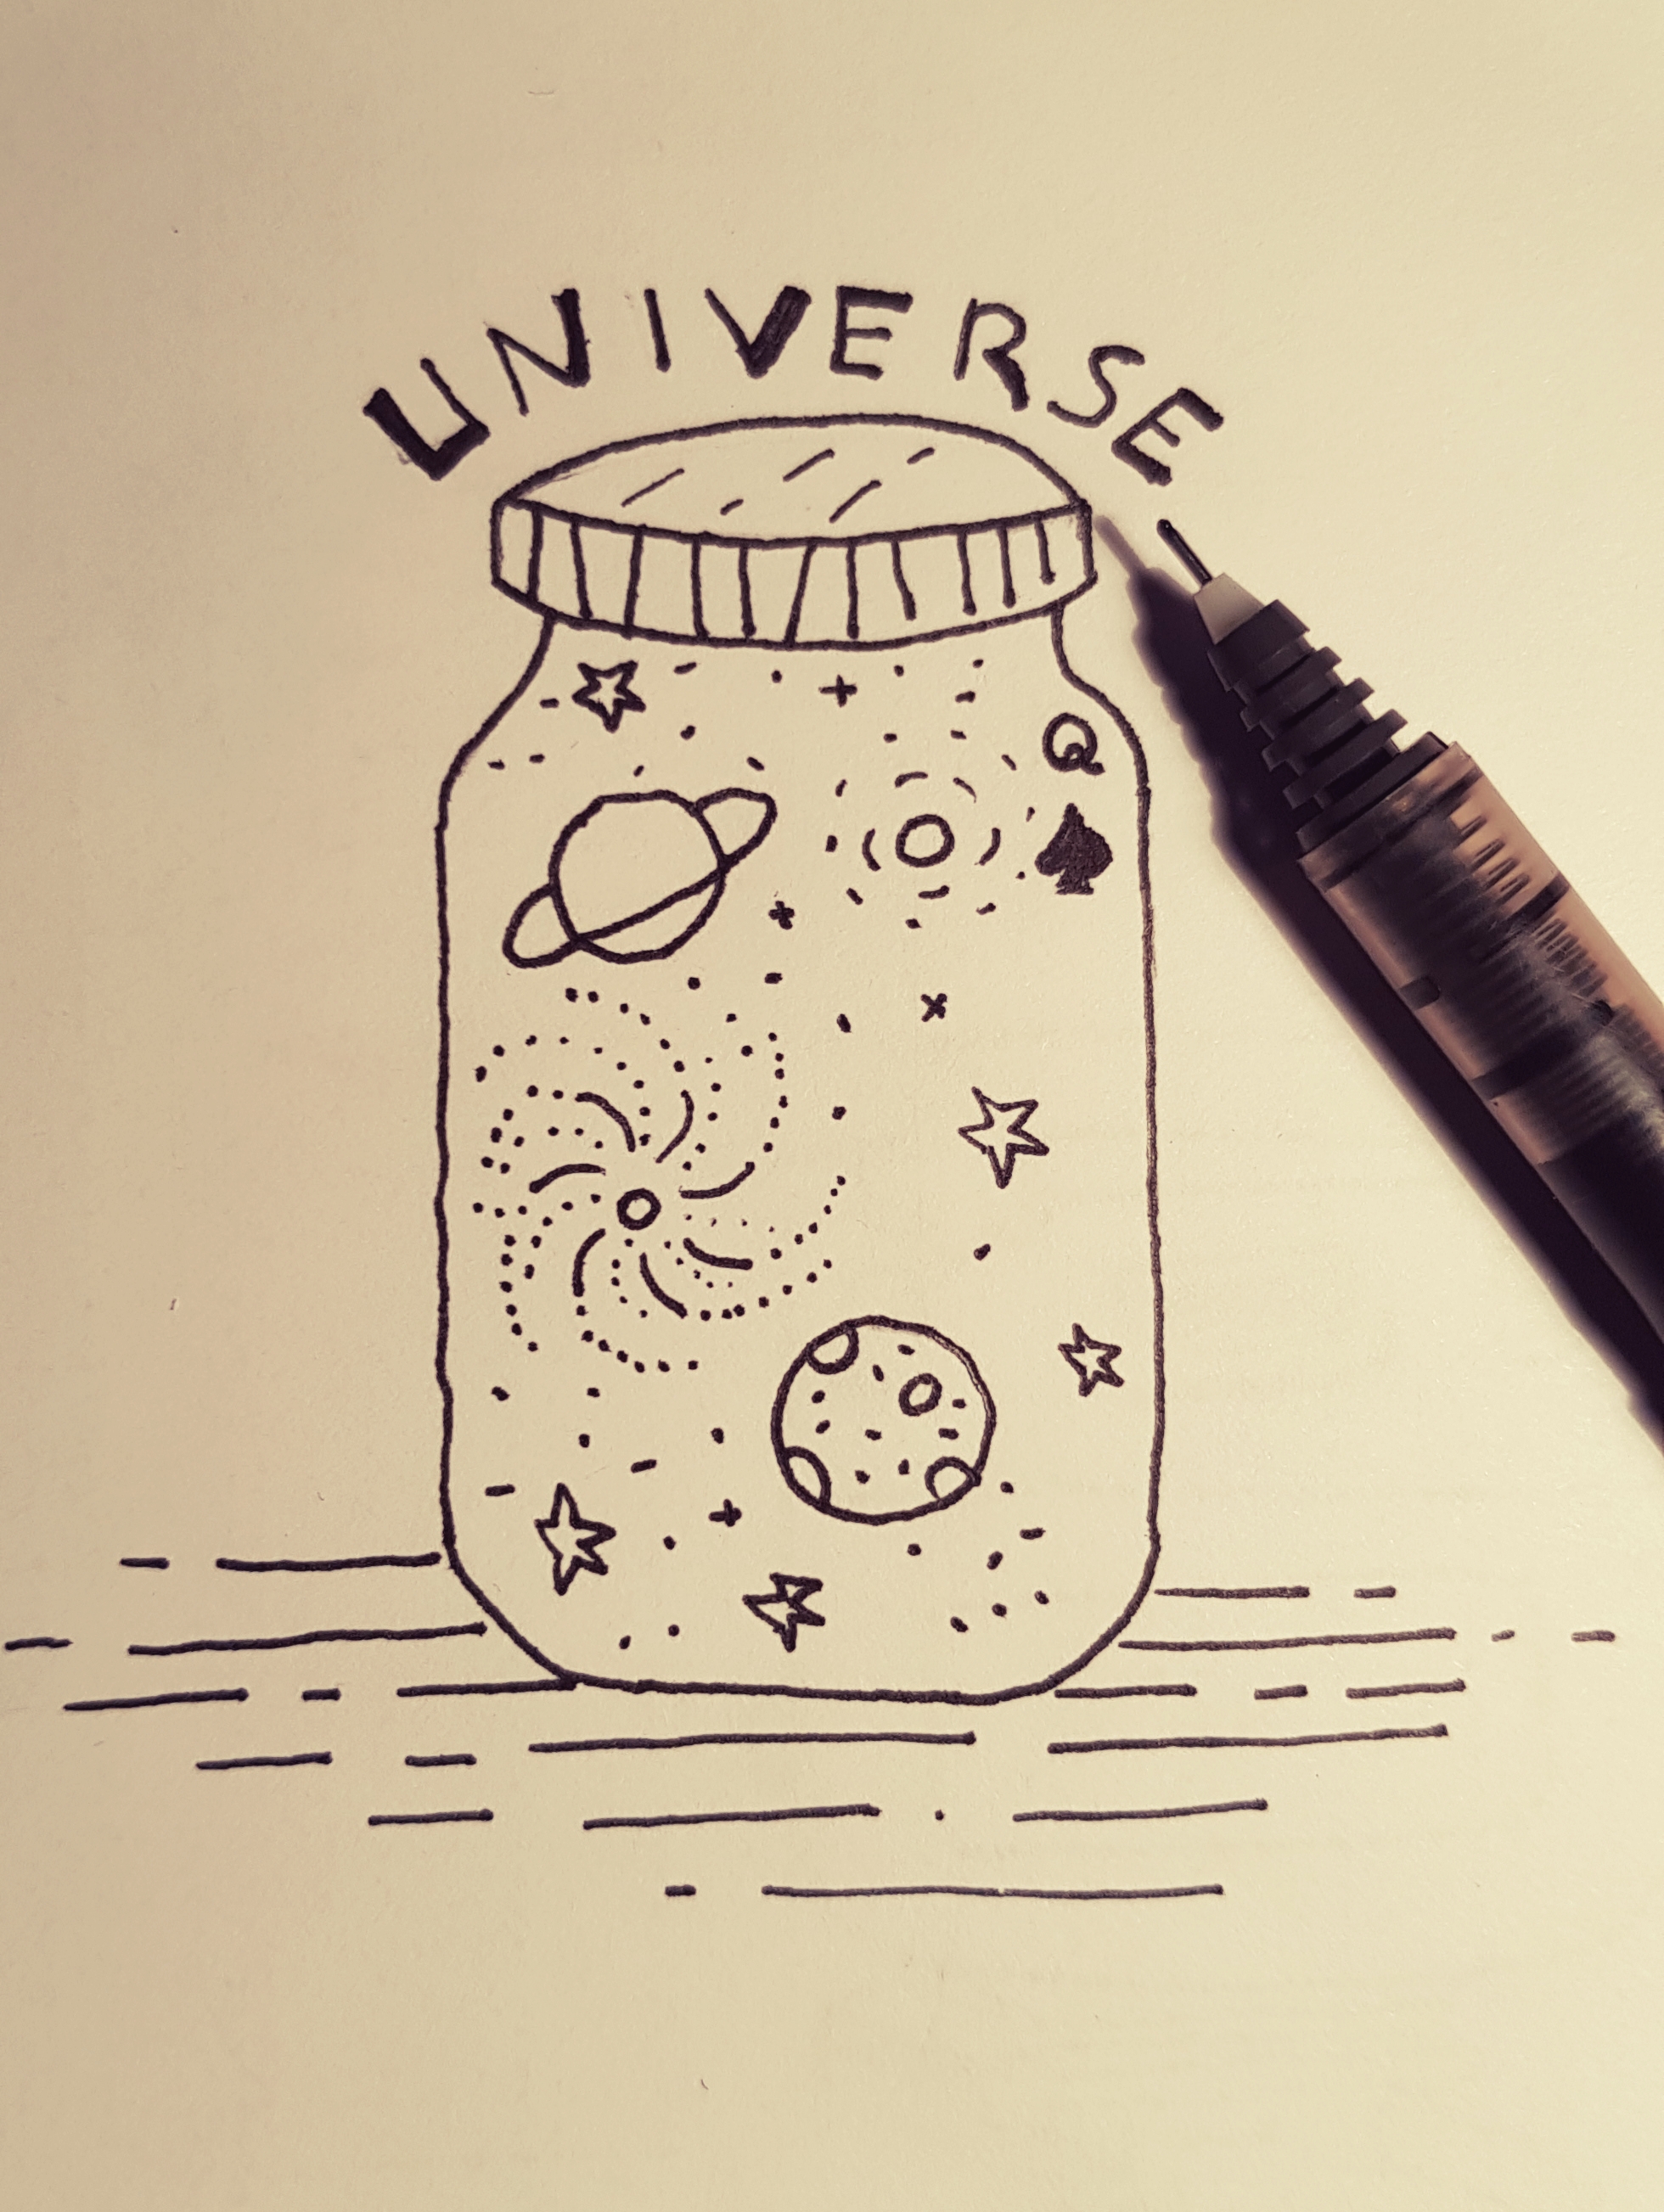 UNIVERSE
Q